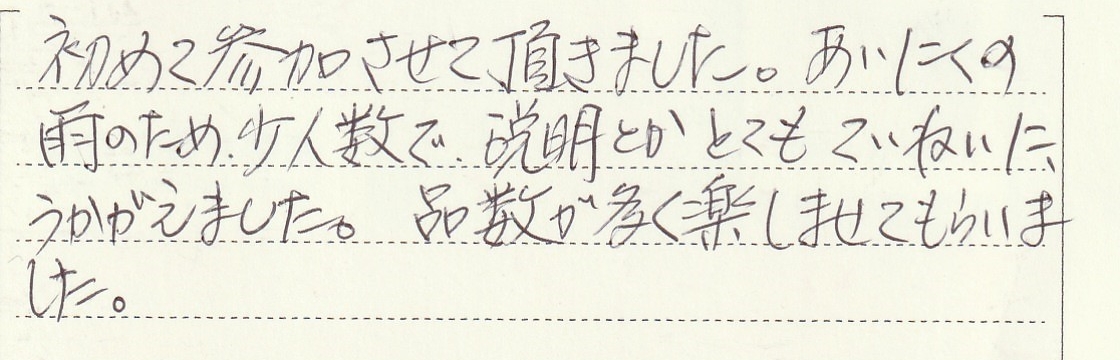 初めて参加させて頂きました。あいにくの
雨のため、少人数で、説明とかとてもていねいに、
うかがえました。 品数が多く楽しませてもらいま
した。